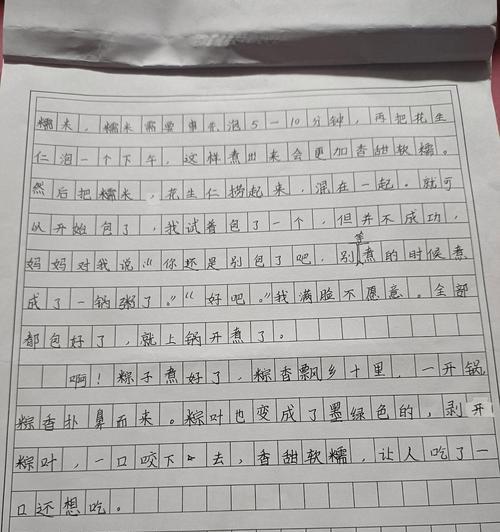 糯米，糯米需要事先泡5—10分钟，再把花生
仁泡一个下午，这样煮出来会更加香甜软糯。
然后把糯米，花生仁捞起来，混在一起。就可
以开始包了，我试着包了一个，但并不成功，
妈妈对我说：“你还是别包了吧，别等煮的时候煮
成了一锅粥了。”“好吧。”我满脸不愿意。全部
都包好了，就上锅开煮了。
啊！粽子煮好了，粽香飘乡十里，一开锅
粽香扑鼻而来。粽叶也变成了墨绿色的，剥开
粽叶，一口咬下去，香甜软糯，让人吃了一
口还想吃。